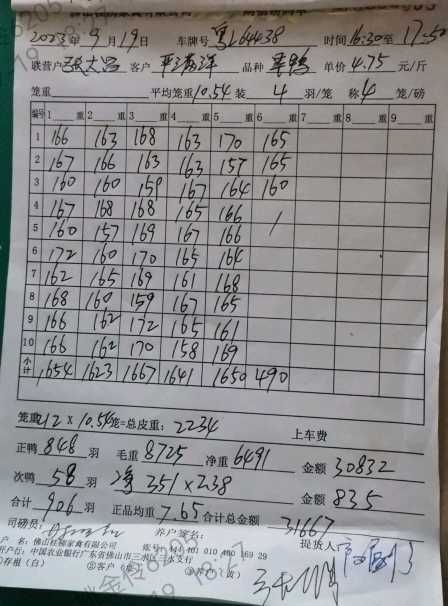 2023年9月19日 车牌号粤L64438 时间16:30至17:50
联营户 客户 品种 单价4.75元/斤
笼重 平均笼重10.54装4羽/笼 称4笼/磅
编号 1 重 2 重 3 重 4 重 5 重 6 重 7 重 8 重 9 重
1 166 163 168 163 170 165
2 167 166 163 163 157 165
3 160 160 159 167 164 160
4 167 168 168 165 166 /
5 160 157 169 167 166
6 172 160 170 165 164
7 162 165 169 161 168
8 168 160 159 167 165
9 166 162 172 165 161
10 166 162 170 158 169
小计 1654 1623 1667 1641 1650 490
笼重212×10.54笼=总皮重:2234 上车费
正鸭848羽 毛重8725 净重6491 金额30832
次鸭58羽 净351×2.38 金额835
合计906羽 正品均重7.65 合计总金额31667
司磅员: 养户签名: 提货人:
户 名:佛山桂柳家禽有限公司 账号:
开户行:中国农业银行广东省佛山市三水区三水支行
①存根(白)